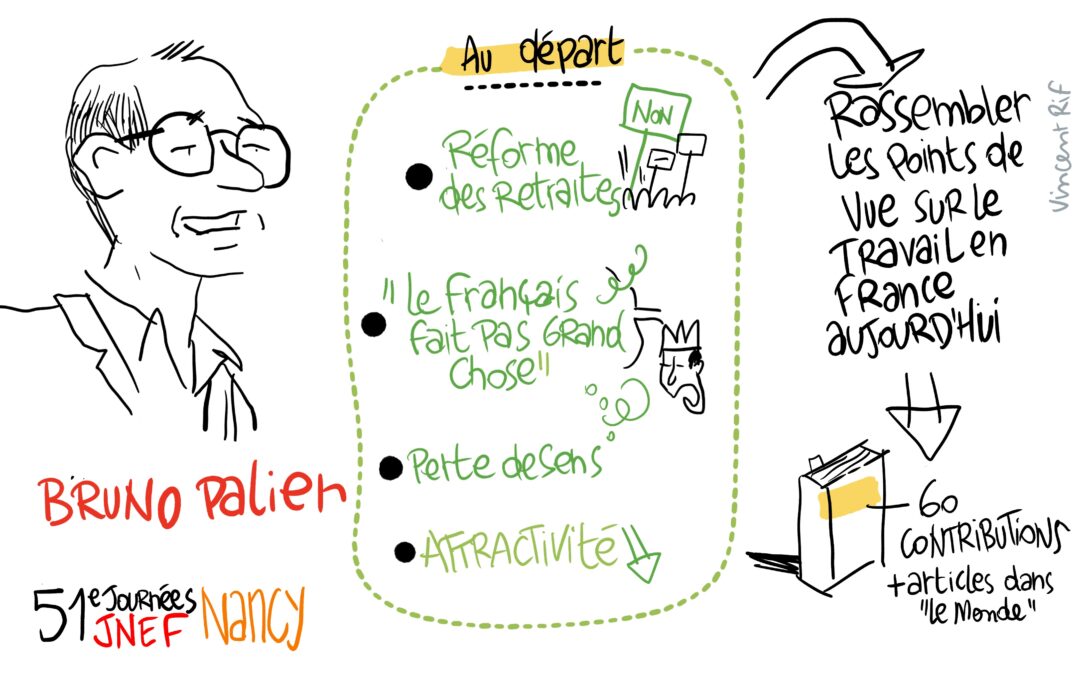 Au départ
Réforme
des Retraites
NoN
"Le Français
fait pas Grand
Chose"
Perte de Sens
ATTRACTIVITÉ
BRUNO PALIER
51e JOURNÉES
JNEF
NANCY
Rassembler
les Points de
Vue sur le
TRAVAIL en
FRANCE
aujourd'hui
60
CONTRIBUTIONS
+ articles dans
"le Monde"
Vincent Rif